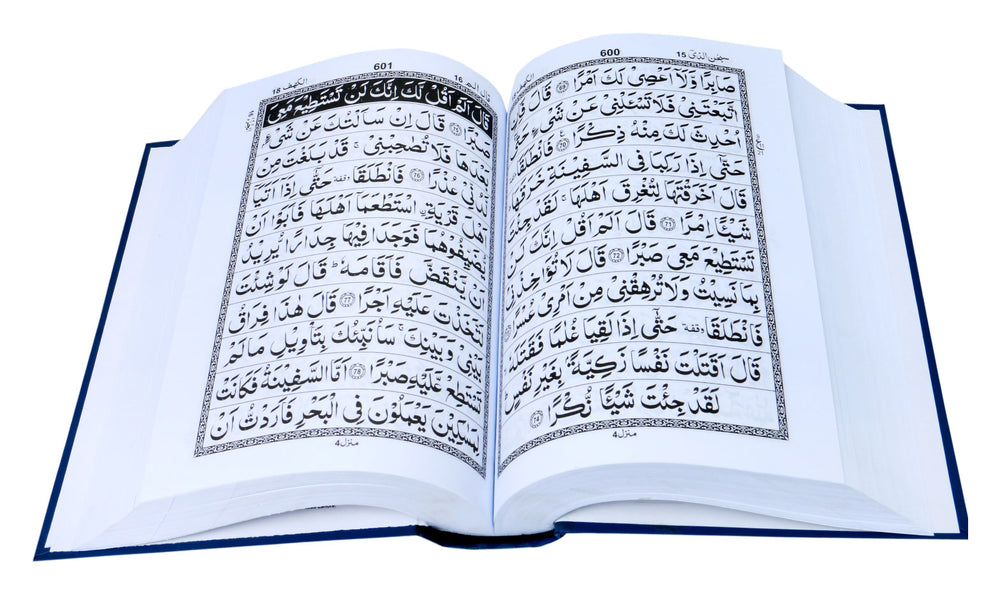 600
سبحٰن الذی 15
صَابِرًا وَّلَاۤ اَعْصِیْ لَكَ اَمْرًا ﴿69﴾ قَالَ فَاِنِ
اتَّبَعْتَنِیْ فَلَا تَسْـَٔلْنِیْ عَنْ شَیْءٍ حَتّٰۤی
اُحْدِثَ لَكَ مِنْهُ ذِكْرًا ﴿70﴾ فَانْطَلَقَا
حَتّٰۤی اِذَا رَكِبَا فِی السَّفِیْنَةِ خَرَقَهَا
قَالَ اَخَرَقْتَهَا لِتُغْرِقَ اَهْلَهَا ۚ لَقَدْ جِئْتَ
شَیْـًٔا اِمْرًا ﴿71﴾ قَالَ اَلَمْ اَقُلْ اِنَّكَ لَنْ
تَسْتَطِیْعَ مَعِیَ صَبْرًا ﴿72﴾ قَالَ لَا تُؤَاخِذْنِیْ
بِمَا نَسِیْتُ وَلَا تُرْهِقْنِیْ مِنْ اَمْرِیْ عُسْرًا
فَانْطَلَقَا وقفة حَتّٰۤی اِذَا لَقِیَا غُلٰمًا فَقَتَلَهٗ
قَالَ اَقَتَلْتَ نَفْسًا زَكِیَّةًۢ بِغَیْرِ نَفْسٍ
لَقَدْ جِئْتَ شَیْـًٔا نُّكْرًا ﴿74﴾
منزل 4
601
قال الم 16
الكهف 18
قَالَ اَلَمْ اَقُلْ لَّكَ اِنَّكَ لَنْ تَسْتَطِیْعَ مَعِیَ
صَبْرًا ﴿75﴾ قَالَ اِنْ سَاَلْتُكَ عَنْ شَیْءٍۭ
بَعْدَهَا فَلَا تُصٰحِبْنِیْ ۚ قَدْ بَلَغْتَ مِنْ
لَّدُنِّیْ عُذْرًا ﴿76﴾ فَانْطَلَقَا وقفة حَتّٰۤی اِذَاۤ اَتَیَاۤ
اَهْلَ قَرْیَةِ ِۨاسْتَطْعَمَاۤ اَهْلَهَا فَاَبَوْا اَنْ
یُّضَیِّفُوْهُمَا فَوَجَدَا فِیْهَا جِدَارًا یُّرِیْدُ
اَنْ یَّنْقَضَّ فَاَقَامَهٗ ؕ قَالَ لَوْ شِئْتَ
لَتَّخَذْتَ عَلَیْهِ اَجْرًا ﴿77﴾ قَالَ هٰذَا فِرَاقُ
بَیْنِیْ وَبَیْنِكَ ۚ سَاُنَبِّئُكَ بِتَاْوِیْلِ مَا لَمْ
تَسْتَطِعْ عَّلَیْهِ صَبْرًا ﴿78﴾ اَمَّا السَّفِیْنَةُ فَكَانَتْ
لِمَسٰكِیْنَ یَعْمَلُوْنَ فِی الْبَحْرِ فَاَرَدْتُّ اَنْ
منزل 4